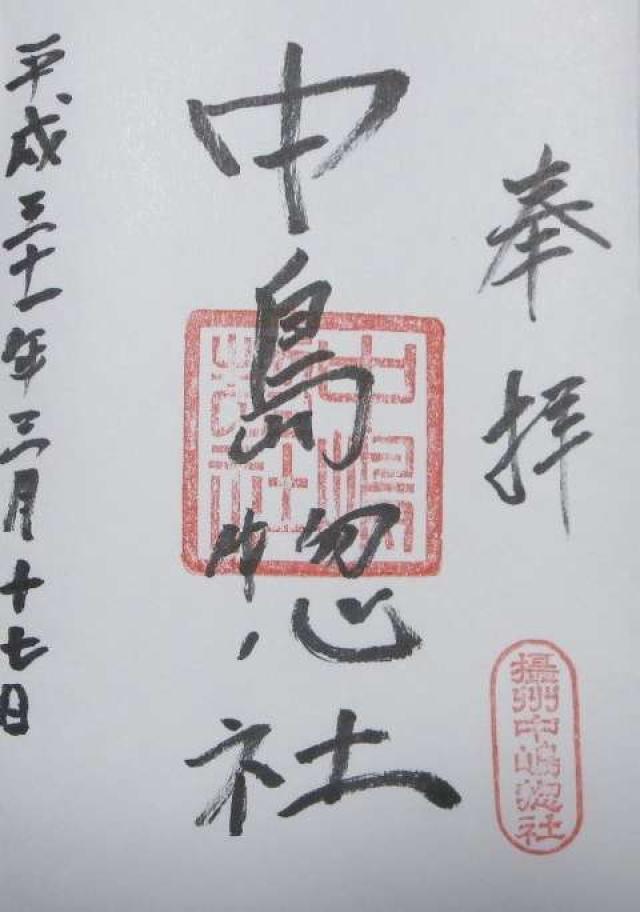 奉拝
攝州中嶋惣社
中島惣社
中嶋惣社
平成三十一年三月十七日